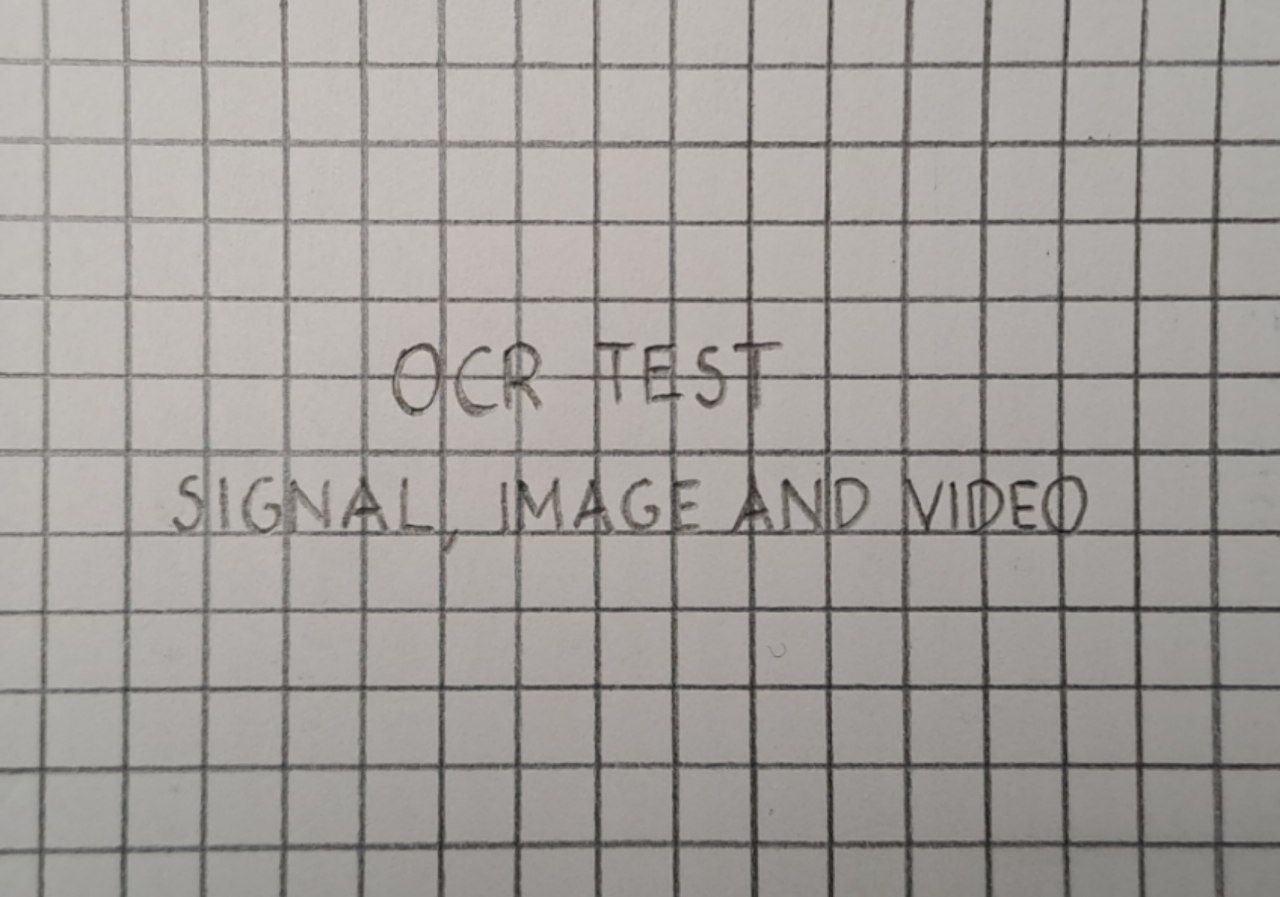 OCR TEST
SIGNAL, IMAGE AND VIDEO